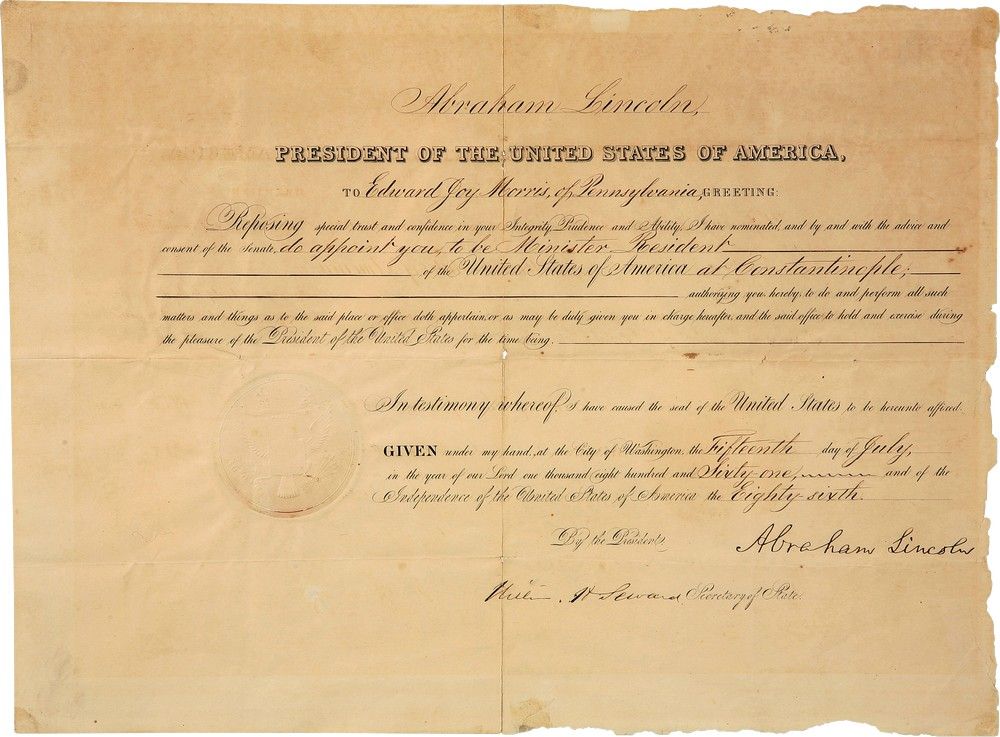 Abraham Lincoln,
PRESIDENT OF THE UNITED STATES OF AMERICA,
TO Edward Joy Morris, of Pennsylvania, GREETING:
Reposing special trust and confidence in your Integrity, Prudence and Ability, I have nominated, and by and with the advice and
consent of the Senate, do appoint you, to be Minister Resident
of the United States of America at Constantinople;
authorizing you, hereby, to do and perform all such
matters and things as to the said place or office doth appertain, or as may be duly given you in charge hereafter, and the said office to hold and exercise during
the pleasure of the President of the United States for the time being.
In testimony whereof, I have caused the seal of the United States to be hereunto affixed.
GIVEN under my hand, at the City of Washington, the Fifteenth day of July,
in the year of our Lord one thousand eight hundred and Sixty-one, and of the
Independence of the United States of America the Eighty-sixth.
By the President, Abraham Lincoln
William H Seward Secretary of State.